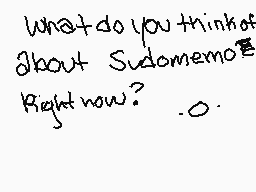 What do you think of
about Sudomemo
Right now?
.O.